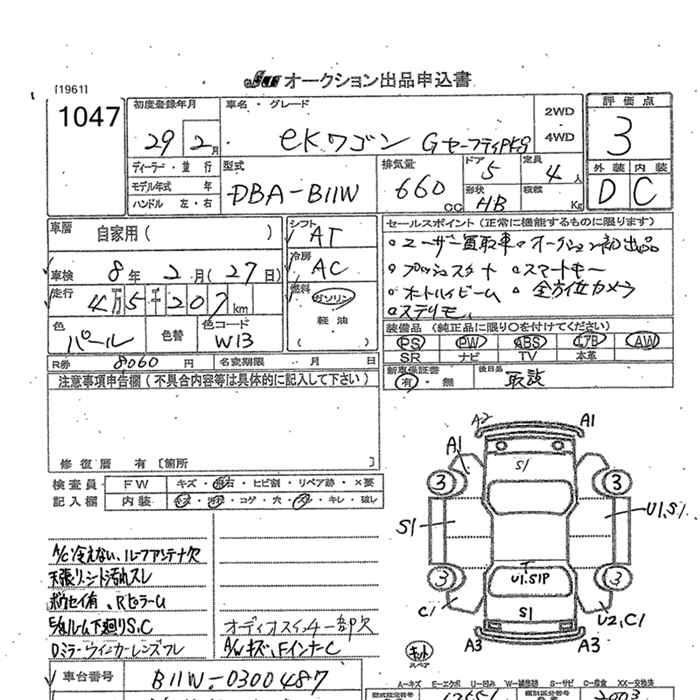 JU オークション出品申込書
[1961]
1047
初度登録年月
29年 2月
車名・グレード
eKワゴン Gセーフティpkg
2WD
4WD
評価点
3
外装 内装
D C
ディーラー・並行
モデル年式 年
ハンドル 左・右
型式
DBA-B11W
排気量
660 CC
ドア 5
形状 HB
定員 4人
積載 Kg
車歴
自家用( )
車検 8年 2月(27日)
走行 4万5千207km
色 パール
色替
色コード W13
シフト AT
冷房 AC
燃料
ガソリン
軽油
( )
セールスポイント(正常に機能するものに限ります)
。ユーザー買取車 。オークション初出品
。プッシュスタート 。スマートキー
。オートハイビーム 。全方位カメラ
。ステリモ
装備品(純正品に限り○を付けてください)
PS PW ABS エアB AW
SR ナビ TV 本革
R券 8060円 名変期限 月 日
新車保証書
有・無
後日品 取説
注意事項申告欄(不具合内容等は具体的に記入して下さい)
修復歴 有[箇所 ]
検査員
記入欄
FW キズ・飛石・ヒビ割・リペア跡・×要
内装 キズ・汚れ・コゲ・穴・スレ・キレ・破レ
A/C冷えない、ルーフアンテナ欠
天張り、シート汚れスレ
ボウセイ有、Rピラーム
E/gルーム下廻りS,C
Dミラーウインカーレンズワレ
オーディオスイッチ一部欠
A/Wキズ、FインナーC
A2 A1
A1
S1
3 3
S1
U1,S1
U1,S1P
3 3
C1
S1
U2,C1
A3 A3
キット
スペア
車台番号 B11W-0300487
A-キズ E-エクボ U-凹み W-補修跡 S-サビ C-腐食 XX-交換済